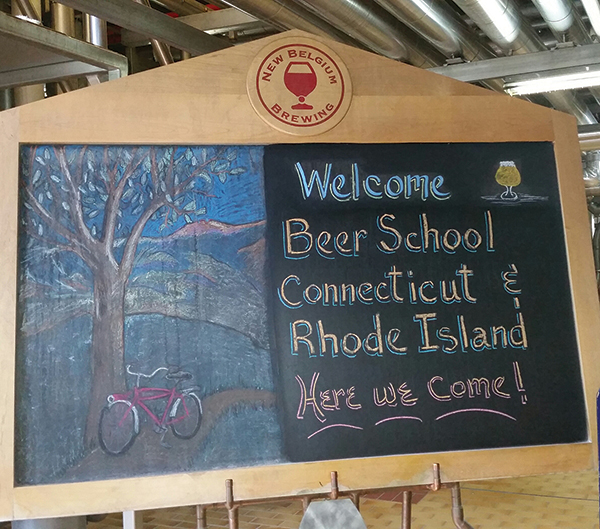 New Belgium
Brewing
Welcome
Beer School
Connecticut &
Rhode Island
Here we come!